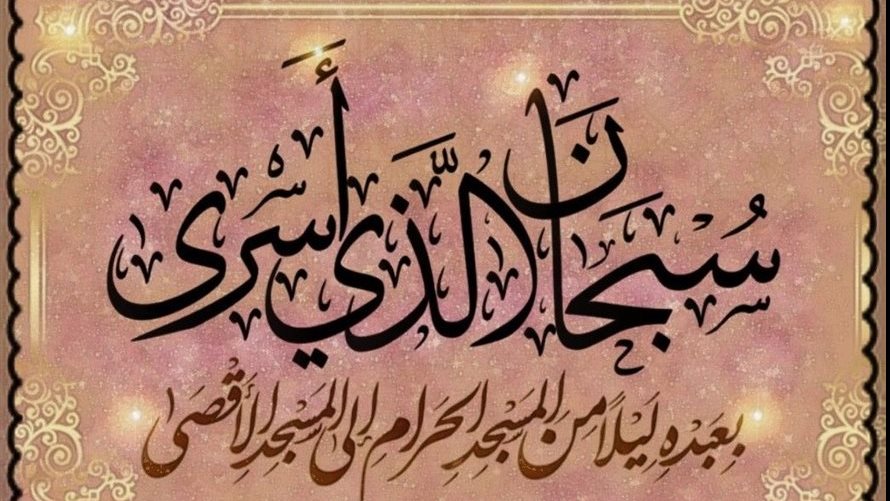 سُبْحَانَ الَّذِي أَسْرَى
بِعَبْدِهِ لَيْلًا مِنَ الْمَسْجِدِ الْحَرَامِ إِلَى الْمَسْجِدِ الْأَقْصَى